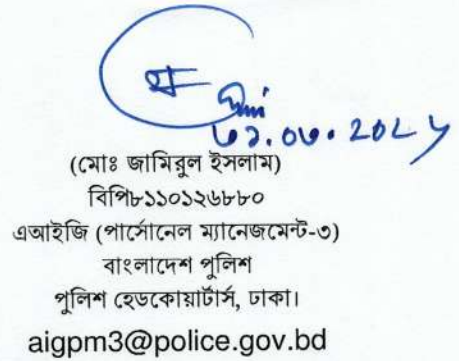 ৩১.০৩.২০২৬
(মোঃ জামিরুল ইসলাম)
বিপি৮১১০১২৬৮৮০
এআইজি (পার্সোনেল ম্যানেজমেন্ট-৩)
বাংলাদেশ পুলিশ
পুলিশ হেডকোয়ার্টার্স, ঢাকা।
aigpm3@police.gov.bd